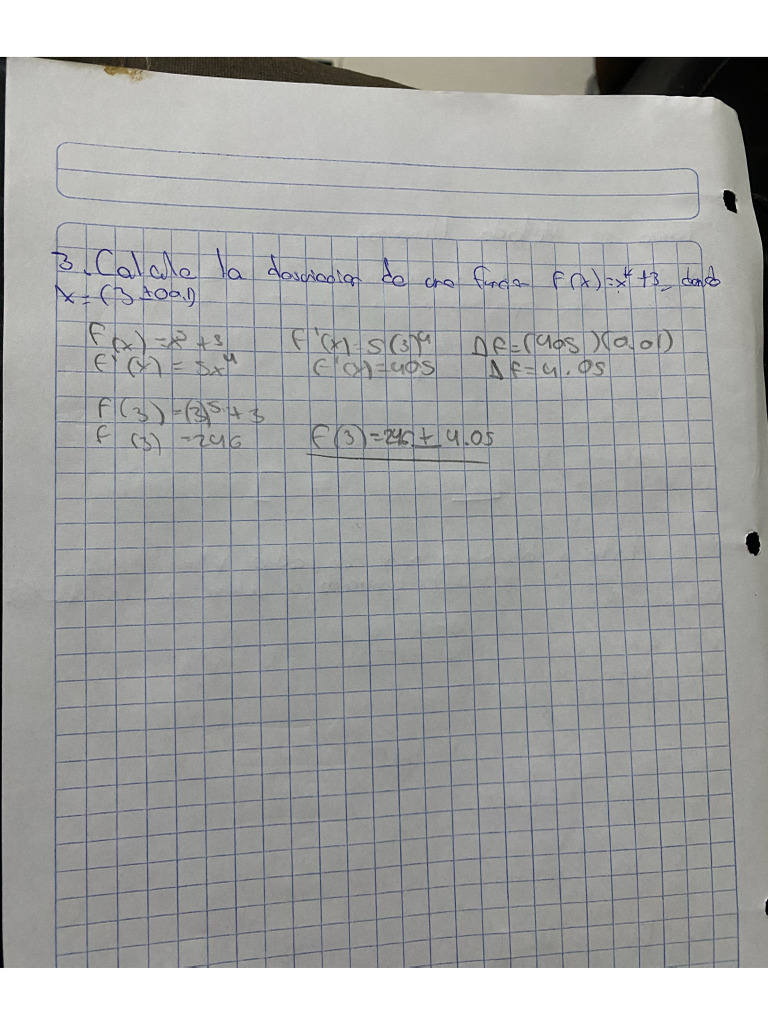 3. Calcule la desviacion de una funcion f(x)=x⁴+3, donde
x=(3±0.01)
f(x)=x⁵+3 f'(x)=5(3)⁴ Δf=(405)(0.01)
f'(x)=5x⁴ f'(x)=405 Δf=4.05
f(3)=(3)⁵+3
f(3)=246 f(3)=246±4.05